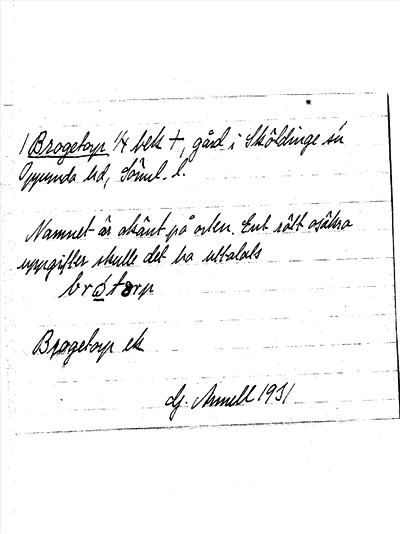 1 Brogetorp 1/4 bek †, gård i Sköldinge sn
Oppunda hd, Söml. l.
Namnet är okänt på orten. Enl rätt osäkra
uppgifter skulle det ha uttalats
brotorp
Brogetorp ek
Dj. Armell 1931